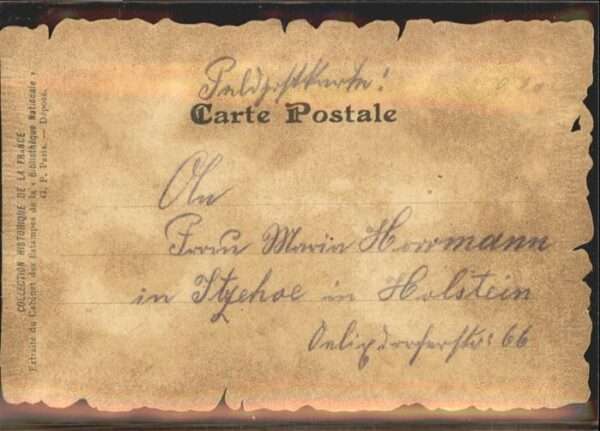 Feldpostkarte!
Carte Postale
An
Frau Maria
in Itzehoe in Holstein
Oelixdorferstr: 66
COLLECTION HISTORIQUE DE LA FRANCE
Extraite du Cabinet des Estampes de la « Bibliothèque Nationale »
Paris. — Déposé.